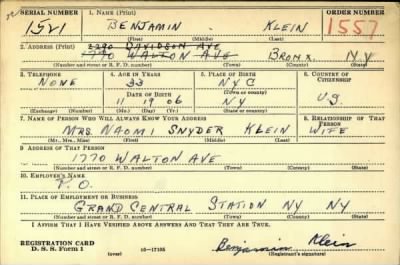 SERIAL NUMBER 1. NAME (Print) ORDER NUMBER
1521 BENJAMIN KLEIN 1557
(First) (Middle) (Last)
2. ADDRESS (Print) 2290 DAVIDSON AVE
1770 WALTON AVE BRONX NY
(Number and street or R. F. D. number) (Town) (County) (State)
3. TELEPHONE 4. AGE IN YEARS 5. PLACE OF BIRTH 6. COUNTRY OF CITIZENSHIP
NONE 33 NYC
DATE OF BIRTH (Town or county)
11 19 06 NY US
(Exchange) (Number) (Mo.) (Day) (Yr.) (State or country)
7. NAME OF PERSON WHO WILL ALWAYS KNOW YOUR ADDRESS 8. RELATIONSHIP OF THAT PERSON
MRS. NAOMI SNYDER KLEIN WIFE
(Mr., Mrs., Miss) (First) (Middle) (Last)
9. ADDRESS OF THAT PERSON
1770 WALTON AVE
(Number and street or R. F. D. number) (Town) (County) (State)
10. EMPLOYER'S NAME
P. O.
11. PLACE OF EMPLOYMENT OR BUSINESS
GRAND CENTRAL STATION NY NY
(Number and street or R. F. D. number) (Town) (County) (State)
I AFFIRM THAT I HAVE VERIFIED ABOVE ANSWERS AND THAT THEY ARE TRUE.
REGISTRATION CARD
D. S. S. Form 1 16—17105 Benjamin Klein
(over) (Registrant's signature)